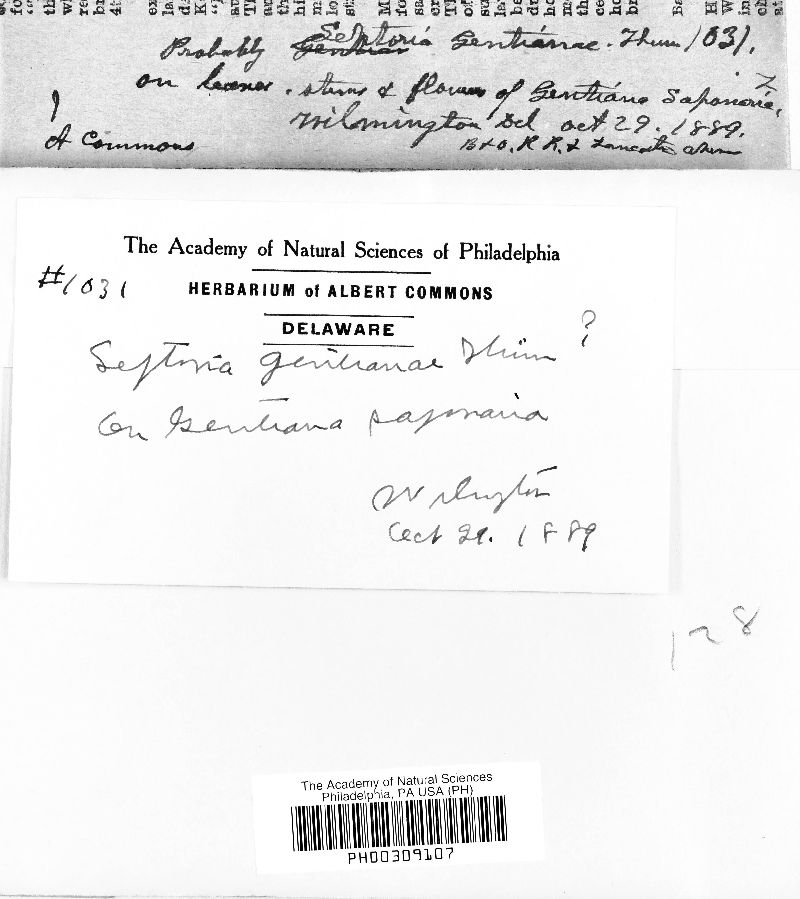 Probably Septoria Gentianae. Thum 1031.
on leaves. stems & flowers of Gentiana Saponaria, L.
Wilmington Del oct 29. 1889.
A Commons
B & O. R R. &
The Academy of Natural Sciences of Philadelphia
#1031
HERBARIUM of ALBERT COMMONS
DELAWARE
Septoria gentianae Thüm ?
On Gentiana saponaria
Wilmington
Oct 29. 1889
128
The Academy of Natural Sciences
Philadelphia, PA USA (PH)
PH00309107